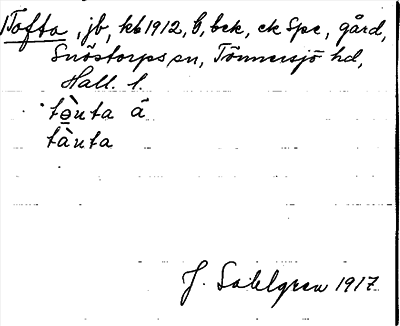 Tofta, jb, kb 1912, b, bek, ek Spe, gård,
Snöstorps sn, Tönnersjö hd,
Hall. l.
tò̲nta å
tànta
J. Sahlgren 1917